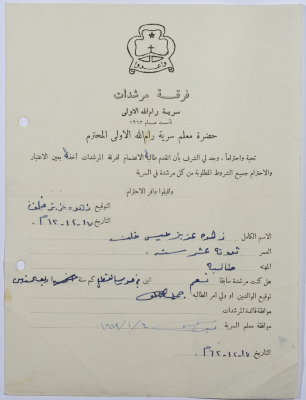 واعدوا
فرقة مرشدات
سرية رام الله الاولى
تأسست عام ١٩٢٣
حضرة معلم سرية رام الله الاولى المحترم
تحية واحتراماً، وبعد لي الشرف بأن اتقدم طالبة الانضمام لفرقة المرشدات آخذة بعين الاعتبار
والاحترام جميع الشروط المطلوبة من كل مرشدة في السرية
واقبلوا وافر الاحترام
التوقيع زهده عزيز خلف
التاريخ ١٧-١٢-٦٢م
الاسم الكامل زهده عزيز عيسى خلف
العمر ثلاثة عشر سنه
المهنه طالبة
هل كنت مرشدة سابقا نعم اين كم سنة
توقيع الوالدين او ولي امر الطالبه
موافقة قائدة المرشدات
موافقة معلم السرية
التاريخ ١٧-١٢-٦٢م